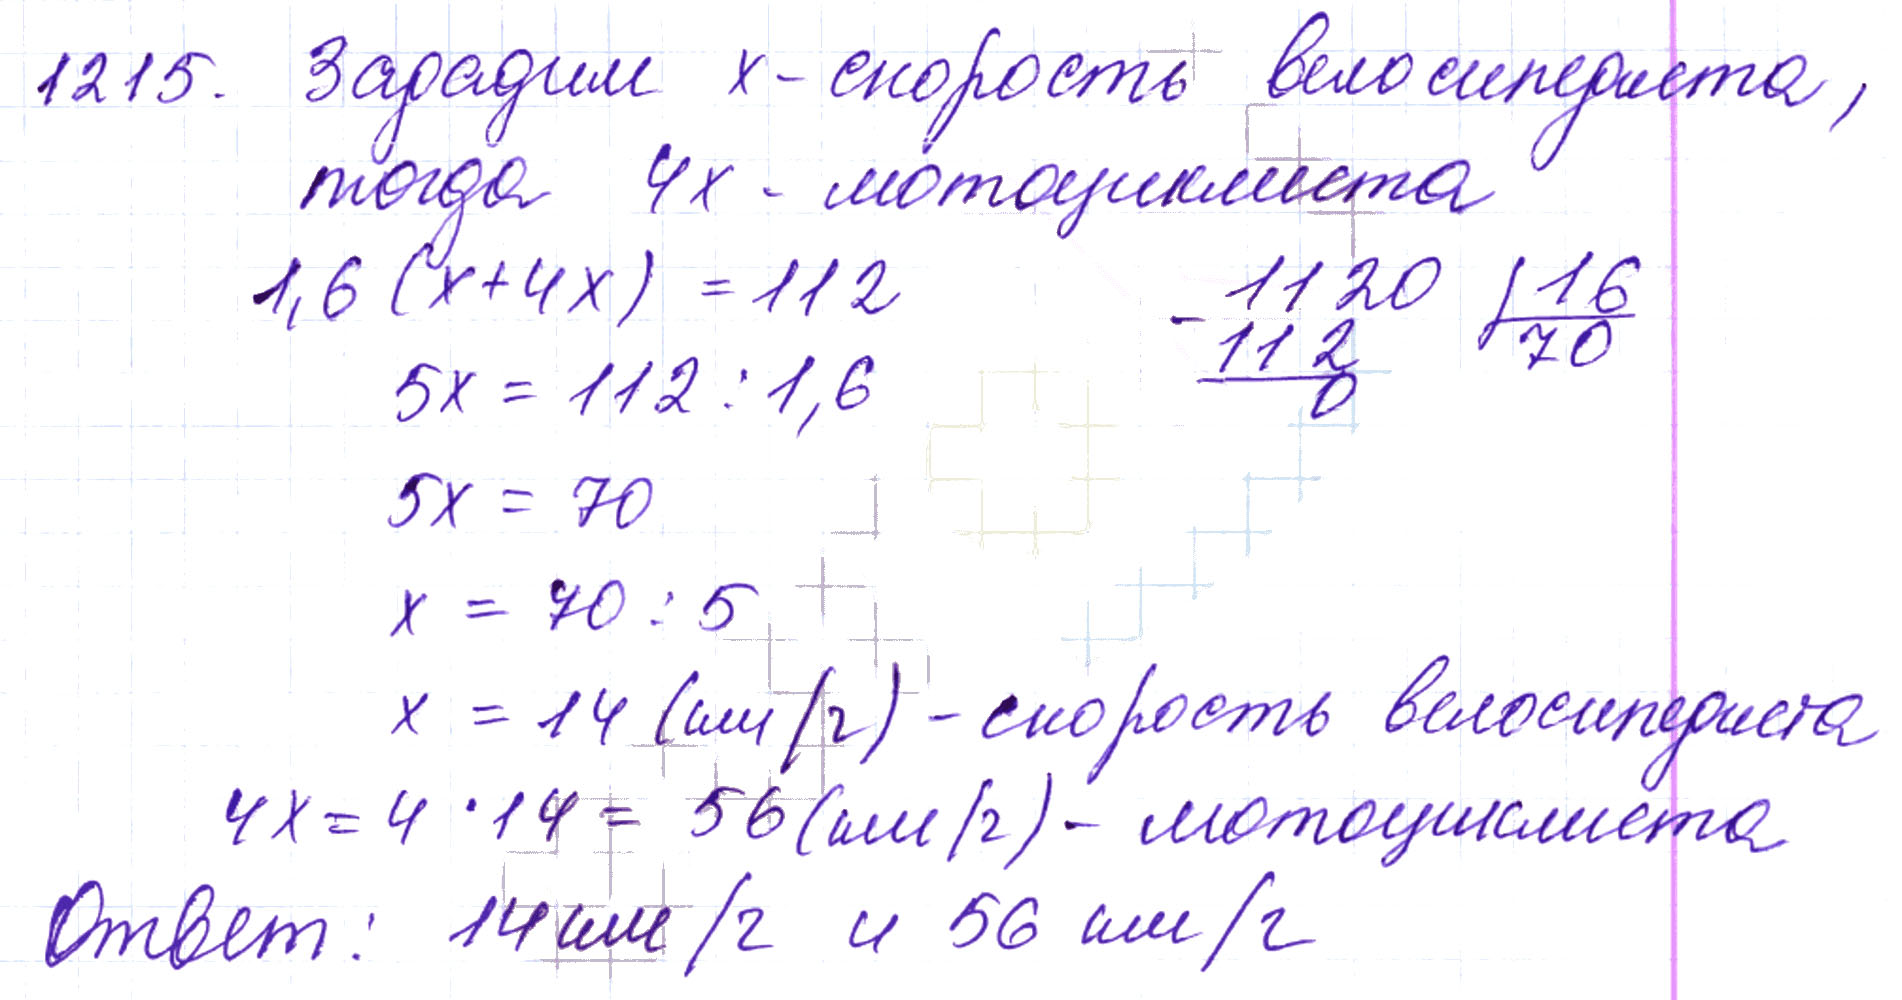 1215. Зададим x - скорость велосипедиста,
тогда 4x - мотоциклиста
1,6 (x+4x) = 112
- 1120 | 16
112 70
0
5x = 112 : 1,6
5x = 70
x = 70 : 5
x = 14 (км/ч) - скорость велосипедиста
4x = 4 · 14 = 56 (км/ч) - мотоциклиста
Ответ: 14 км/ч и 56 км/ч